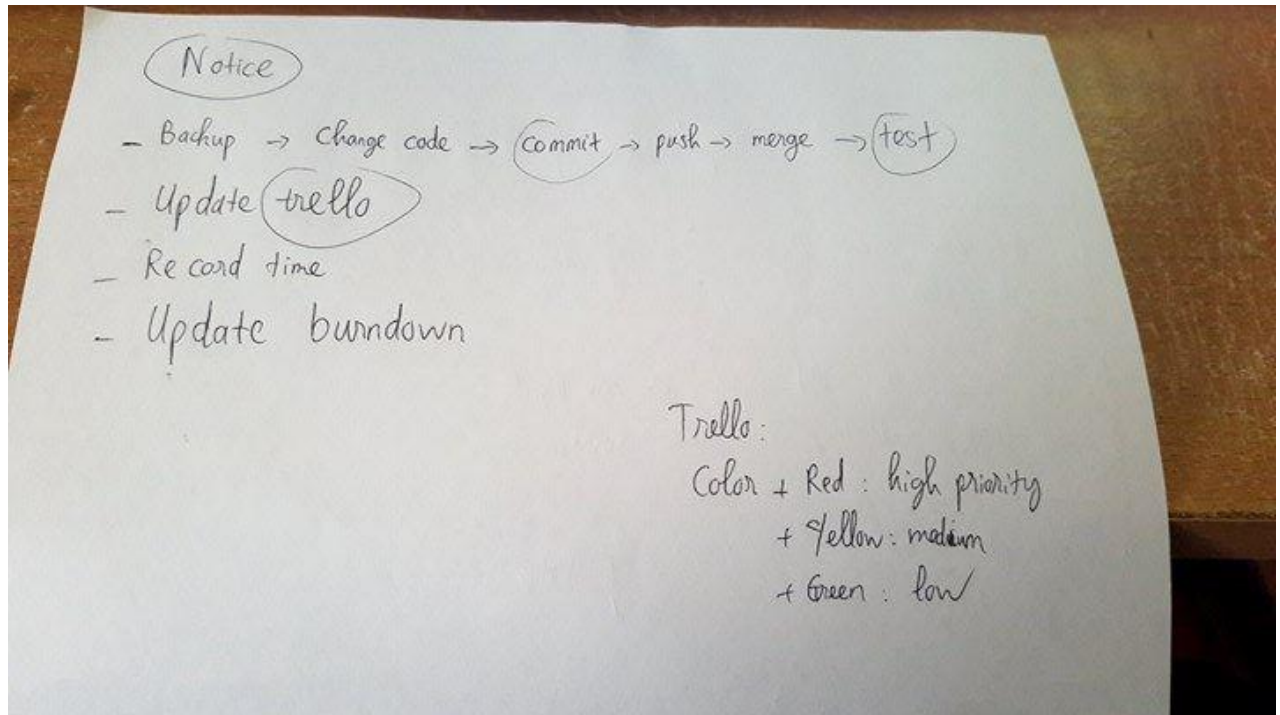 Notice
- Backup → Change code → commit → push → merge → test
- Update trello
- Record time
- Update burndown
Trello:
Color + Red : high priority
+ Yellow : medium
+ Green : low